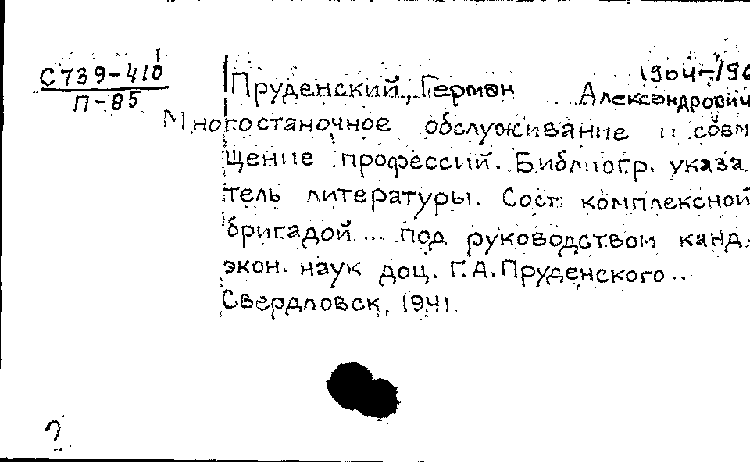 С739-410
П-85
1904-196
Пруденский, Герман Александрович
Многостаночное обслуживание и совм
щение профессий. Библиогр. указа
тель литературы. Сост комплексной
бригадой... под руководством канд.
экон. наук доц. Г.А.Пруденского..
Свердловск, 1941.